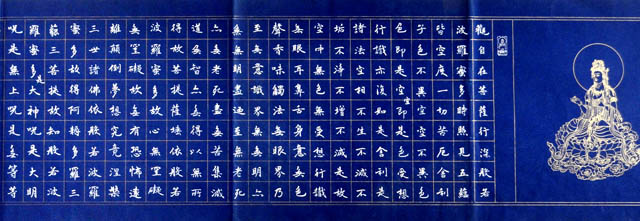 觀自在菩薩行深般若
波羅蜜多時照見五蘊
皆空度一切苦厄舍利
子色不異空空不異色
色即是空空即是色受想
行識亦復如是舍利子是
諸法空相不生不滅不
垢不淨不增不減是故
空中無色無受想行識
無眼耳鼻舌身意無色
聲香味觸法無眼界乃
至無意識界無無明亦
無無明盡乃至無老死
亦無老死盡無苦集滅
道無智亦無得以無所
得故菩提薩埵依般若
波羅蜜多故心無罣礙
無罣礙故無有恐怖遠
離顛倒夢想究竟涅槃
三世諸佛依般若波羅
蜜多故得阿耨多羅三
藐三菩提故知般若波
羅蜜多是大神咒是大明
咒是無上咒是無等等